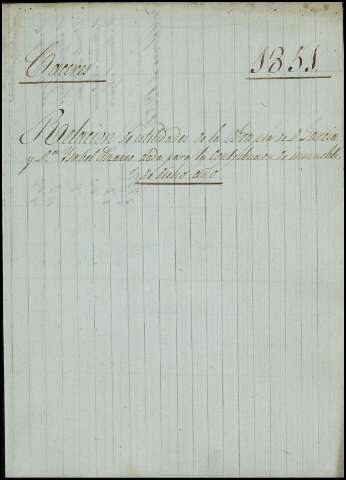 Caceres 1851
Relacion de utilidades de la Obra pia de Dn Garcia
y Da Ysabel dada para la Contribucion de inmuebles
de dicho año